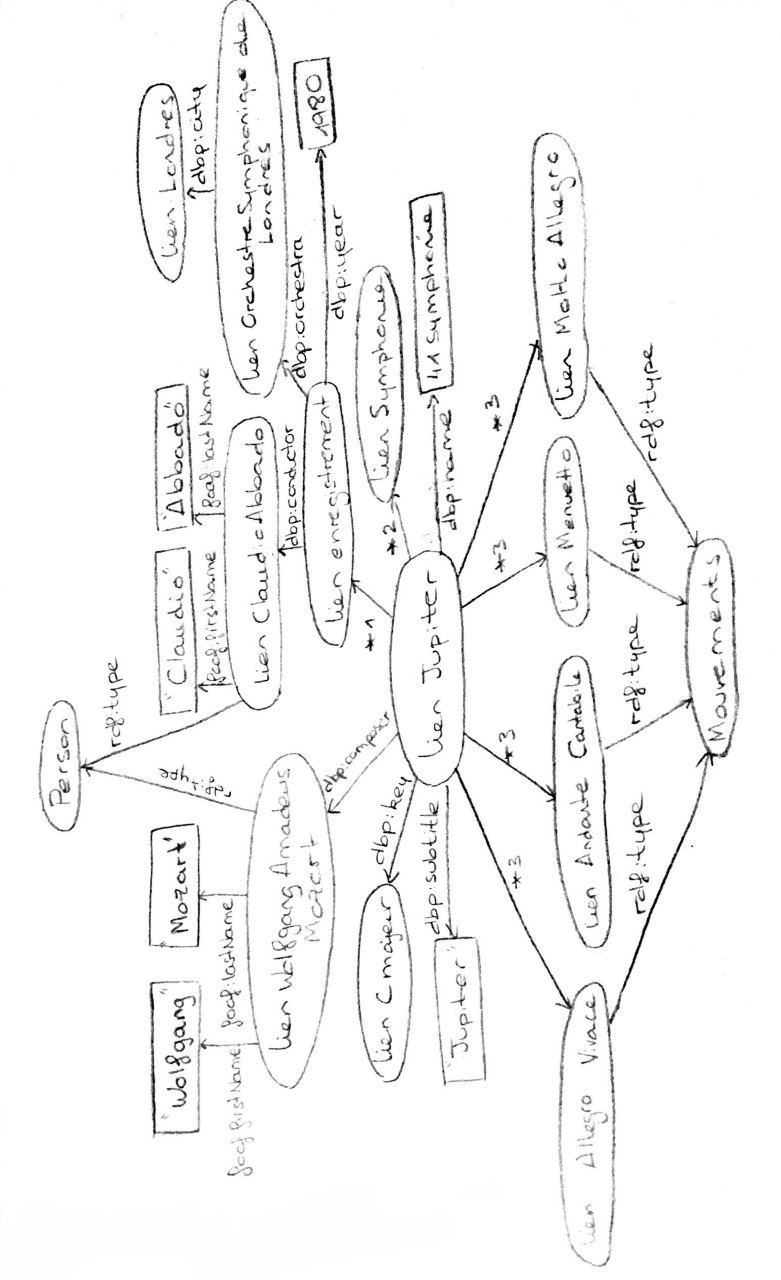 Person
rdf:type
rdf:type
"Wolfgang"
"Mozart"
"Claudio"
"Abbado"
lien Londres
foaf:firstName
foaf:lastName
foaf:firstName
foaf:lastName
dbp:city
lien Wolfgang Amadeus
Mozart
lien Claudio Abbado
lien Orchestre Symphonique de
Londres
dbp:conductor
dbp:orchestra
lien enregistrement
1980
dbp:year
dbp:composer
*1
lien C majeur
dbp:key
*2
lien Symphonie
"Jupiter"
dbp:subtitle
lien Jupiter
dbp:name
41 symphonie
*3
*3
*3
*3
lien Allegro Vivace
lien Andante Cantabile
lien Menuetto
lien Molto Allegro
rdf:type
rdf:type
rdf:type
rdf:type
Mouvements